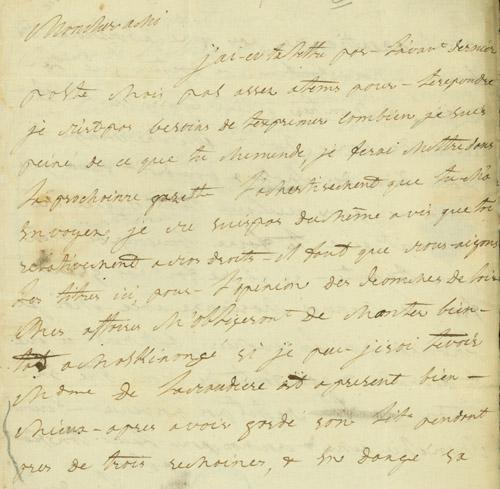 Moncher ami
j'ai eu ta lettre par l'avant dernier
poste mais pas assez atems pour te repondre
je n'est pas besoins de t'exprimer combien je suis
peiné de ce que tu me mende, je ferai mettre dans
la prochainne gazette l'avertissement que tu m'a
envoyez, je ne suis pas du même avis que toi
relativement a nos droits il faut que nous aizons
les titres ici, pour l'opinion des hommes de loix
Mes affaires m'obligeront de monter bien
tot a Maskinongé si je puis j'irai te voir
Mdme de Lanaudiere est apresent bien
Mieux apres avoir garde son lit pendant
pres de trois semaines, & en dangé sa